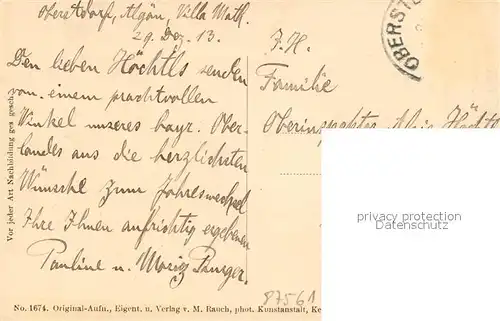 Oberstdorf, Algäu, Villa Math.
29. Dez. 13.
Den lieben Höchtls senden
von einem prachtvollen
Winkel unseres bayr. Ober-
landes aus die herzlichsten
Wünsche zum Jahreswechsel
Ihre Ihnen aufrichtig ergebenen
Pauline u. Moriz Burger.
J. H.
Familie
Oberinspektor Alois Höchtl
OBERST
Vor jeder Art Nachbildung ges. gesch.
87561
No. 1674. Original-Aufn., Eigent. u. Verlag v. M. Rauch, phot. Kunstanstalt, Ke
privacy protection
Datenschutz